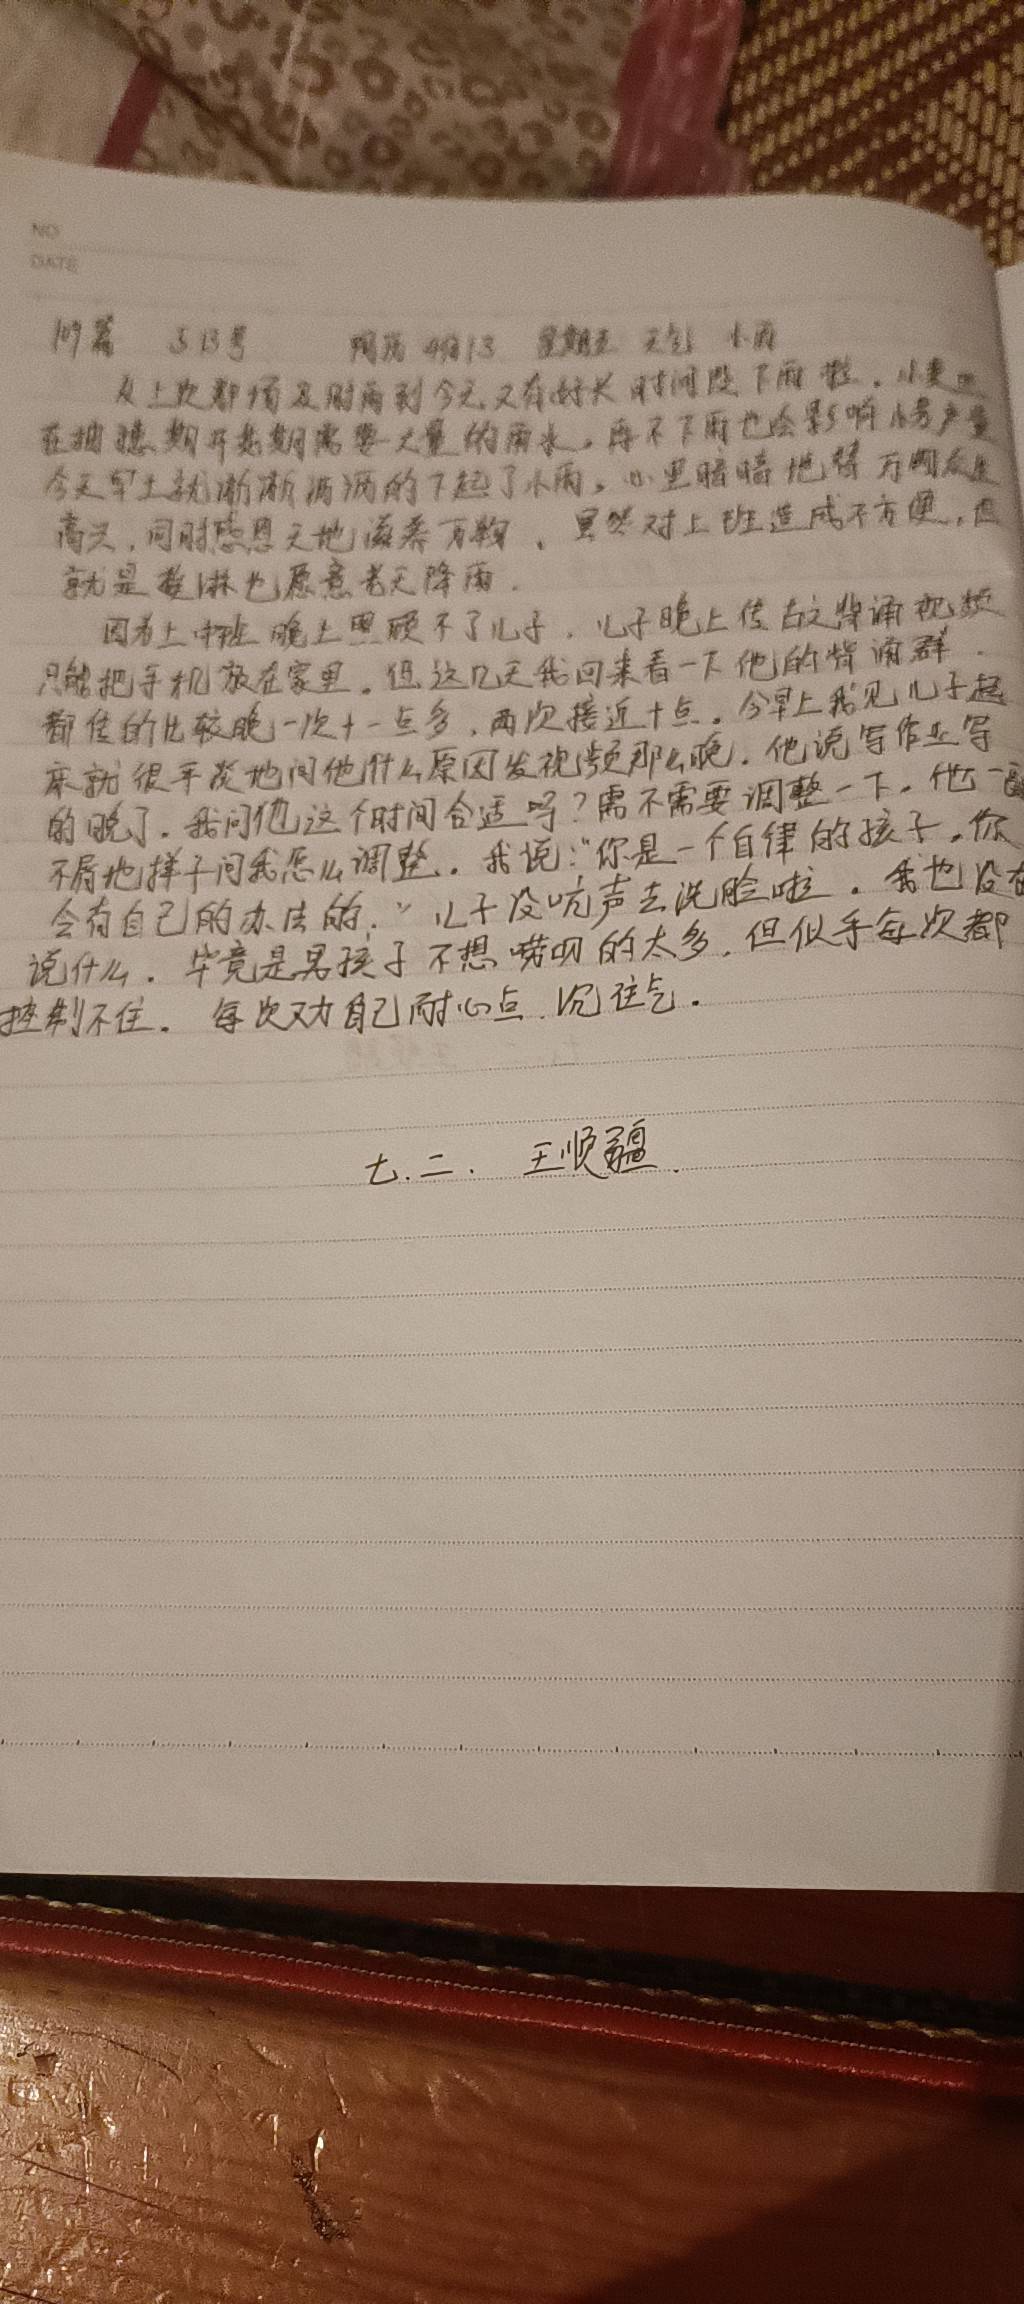 NO
DATE
109篇 513号 阳历4月13 星期五 天气 小雨
从上次那场及时雨到今天又有好长时间没下雨啦。小麦
在抽穗期开花期需要大量的雨水。再不下雨也会影响 产量
今天早上就淅淅沥沥的下起了小雨。心里暗暗地替万物众生
高兴,同时感恩天地滋养万物。虽然对上班造成不方便,但
就是 淋也愿意老天降雨.
因为上中班晚上照顾不了儿子,儿子晚上传古文背诵视频
只能把手机放在家里。但这几天我回来看一下他的背诵群.
都传的比较晚一次十一点多,两次接近十点。今早上我见儿子起
床就很平淡地问他什么原因发视频那么晚.他说写作业写
的晚了.我问他这个时间合适吗?需不需要调整一下.他一副
不屑地样子问我怎么调整.我说:“你是一个自律的孩子.你
会有自己的办法的.”儿子没吭声去洗脸啦.我也没有
说什么.毕竟是男孩子不想唠叨的太多.但似乎每次都
控制不住.每次对自己耐心点.沉住气.
七.二.王顺疆.